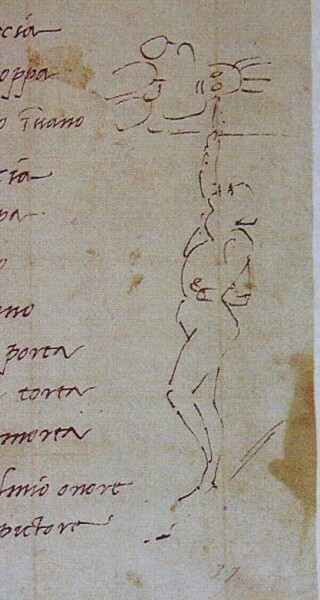 ecia
oppa
o ī vano
cia
pa
o
ano
porta
torta
morta
l mio onore
pictore